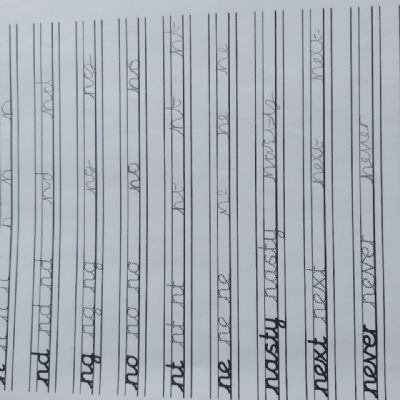 n n n n n n
nd nd nd nd nd
ng ng ng ng ng
no no no no no
nt nt nt nt nt nt
ne ne ne ne ne ne
nasty nasty nasty
next next next next
never never never